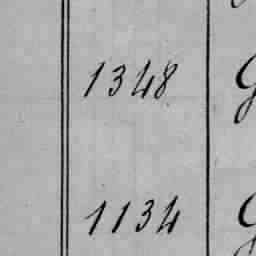 1348
1134